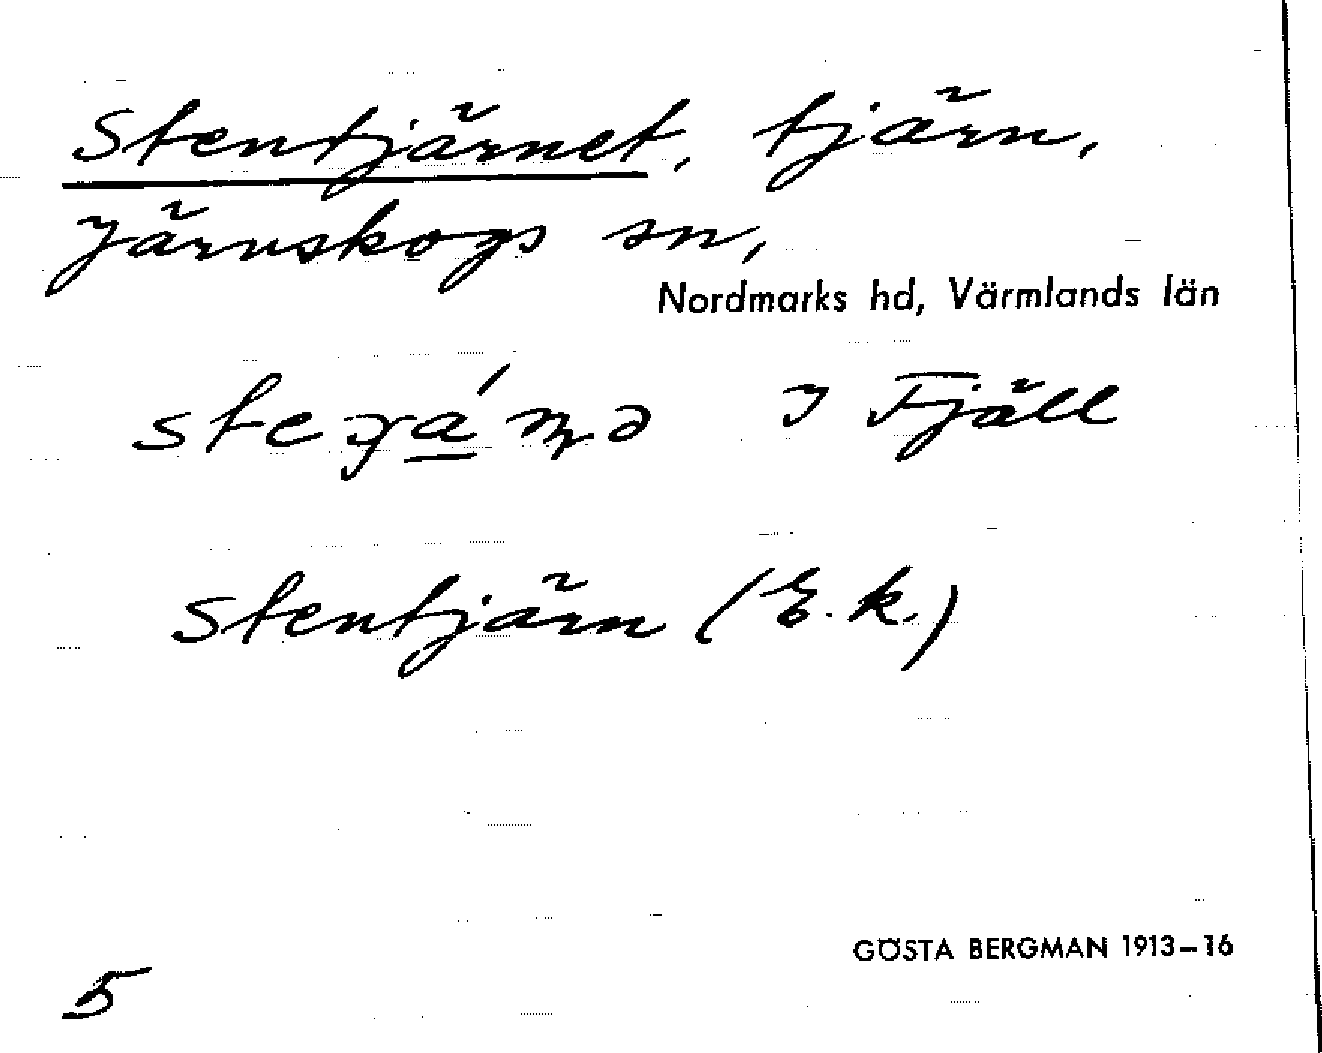 Stentjärnet, tjärn,
Järnskogs sn,
Nordmarks hd, Värmlands län
I Fjäll
Stentjärn (E.k.)
GÖSTA BERGMAN 1913–16
5